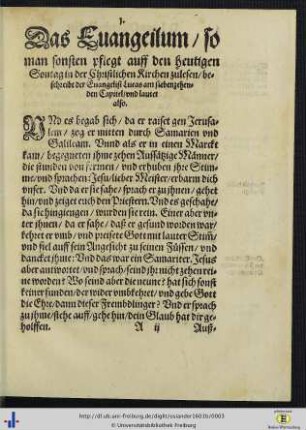 Das Euangeilum / so
man sonsten pflegt auff den heutigen
Sontag in der Christlichen Kirchen zulesen / be-
schreibt der Euangelist Lucas am siebenzehen-
den Capitel / vnd lautet
also.
VNd es begab sich / da er raiset gen Jerusa-
lem / zog er mitten durch Samarien vnd
Galileam. Vnnd als er in einen Marckt
kam / begegneten ihme zehen Aussätzige Männer /
die stunden von fernen / vnd erhuben ihre Stim-
me / vnd sprachen: Jesu / lieber Meister / erbarm dich
vnser. Vnd da er sie sahe / sprach er zu jhnen / gehet
hin / vnd zeiget euch den Priestern. Vnd es geschahe /
da sie hingiengen / wurden sie rein. Einer aber vn-
ter jhnen / da er sahe / daß er gesund worden war /
kehret er vmb / vnd preisete Gott mit lauter Stim̃ /
vnd fiel auff sein Angesicht zu seinen Füssen / vnd
dancket jhme: Vnd das war ein Samariter. Jesus
aber antwortet / vnd sprach / seind jhr nicht zehen rei-
ne worden? Wo seind aber die neune? hat sich sonst
keiner funden / der wider vmbkehret / vnd gebe Gott
die Ehre / dann dieser Frembdlinger? Vnd er sprach
zu jhme / stehe auff / gehe hin / dein Glaub hat dir ge-
holffen.
A ij Auß-
http://dl.ub.uni-freiburg.de/diglit/osiander1603b/0003
© Universitätsbibliothek Freiburg